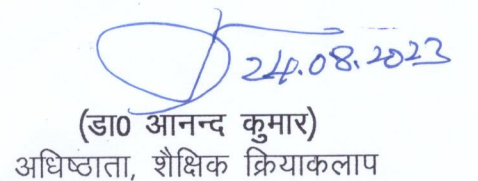 24.08.2023
(डा0 आनन्द कुमार)
अधिष्ठाता, शैक्षिक क्रियाकलाप